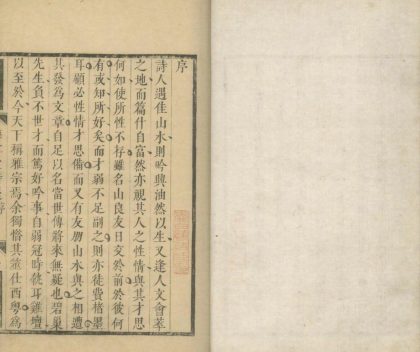 序
詩人遇佳山水則吟興油然以生又逢人文會萃
之地而篇什自富然亦視其人之性情與其才思
何如使所性不存雖名山良友日交於前於彼何
有或知所好矣而才弱不足副之則亦徒費楮墨
耳顧必性情才思備而又有友朋山水與之相遭
其發為文章自足以名當世傳將來無疑也碧巢
先生負不世才而篤好吟事自弱冠時執耳雞壇
以至於今天下稱雅宗焉余獨惜其薄仕西粵為